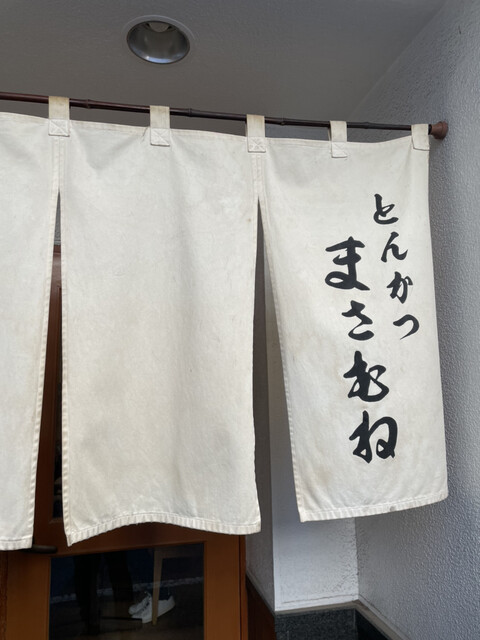 とんかつ
まさむね